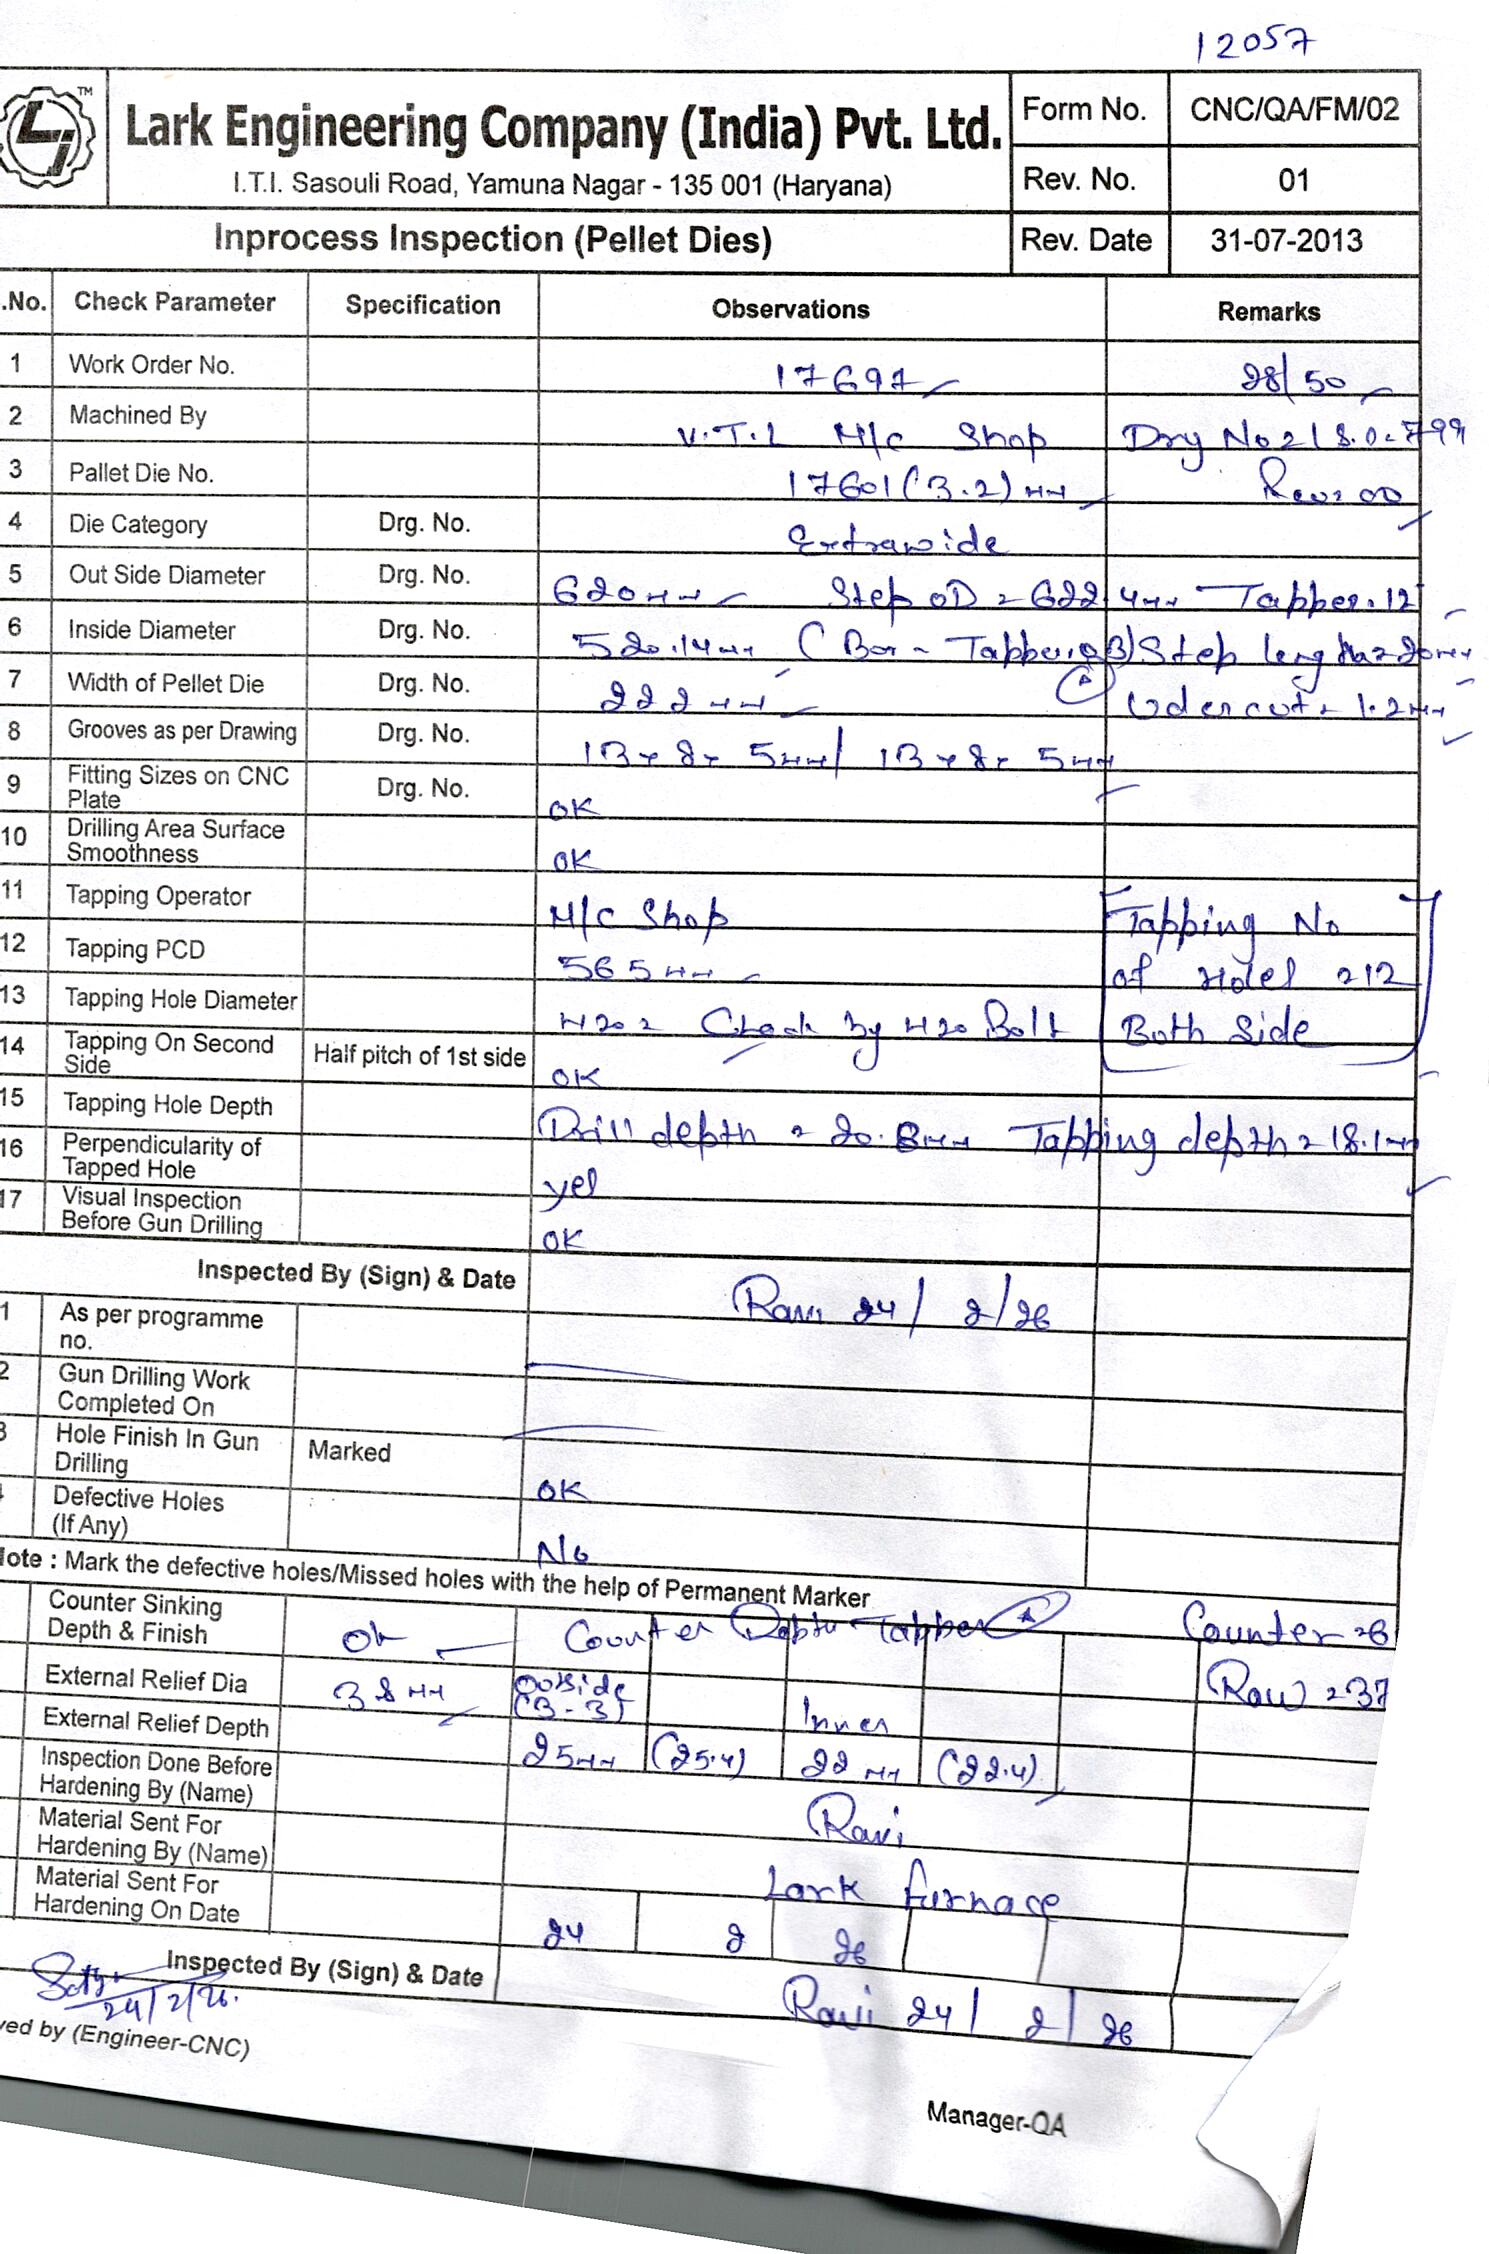 12057
TM
Lark Engineering Company (India) Pvt. Ltd.
I.T.I. Sasouli Road, Yamuna Nagar - 135 001 (Haryana)
Form No. CNC/QA/FM/02
Rev. No. 01
Inprocess Inspection (Pellet Dies) Rev. Date 31-07-2013
.No. Check Parameter Specification Observations Remarks
1 Work Order No. 17697 28/50
2 Machined By V.T.L M/c Shop
3 Pallet Die No. 17601 (3.2) mm
4 Die Category Drg. No. Extrawide
5 Out Side Diameter Drg. No. 620mm Step OD = 622.4mm Tapper. 12
6 Inside Diameter Drg. No. 520.14mm
7 Width of Pellet Die Drg. No. 222mm 1.2mm
8 Grooves as per Drawing Drg. No. 13 x 8 x 5mm / 13 x 8 x 5mm
9 Fitting Sizes on CNC Plate Drg. No. OK
10 Drilling Area Surface Smoothness OK
11 Tapping Operator M/C Shop Tapping No
12 Tapping PCD 565mm of Holes = 12
13 Tapping Hole Diameter M20 = Check by M20 Bolt Both Side
14 Tapping On Second Side Half pitch of 1st side OK
15 Tapping Hole Depth Drill depth = 20.8mm Tapping depth = 18.1mm
16 Perpendicularity of Tapped Hole yes
17 Visual Inspection Before Gun Drilling OK
Inspected By (Sign) & Date Ravi 24/2/26
1 As per programme no.
2 Gun Drilling Work Completed On
3 Hole Finish In Gun Drilling Marked OK
Defective Holes (If Any) No
lote : Mark the defective holes/Missed holes with the help of Permanent Marker
Counter Sinking Depth & Finish Ok Counter Tapper Counter = 6
External Relief Dia 38mm Outside (3-3) Inner Row = 37
External Relief Depth 25mm (25.4) 22mm (22.4)
Inspection Done Before Hardening By (Name) Ravi
Material Sent For Hardening By (Name) Lark furnace
Material Sent For Hardening On Date 24 2 26
Inspected By (Sign) & Date Ravi 24/2/26
24/2/26.
ved by (Engineer-CNC)
Manager-QA